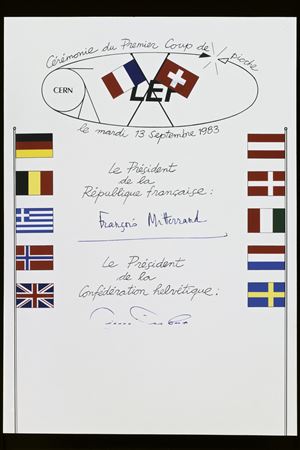 Cérémonie du Premier Coup de pioche
CERN
LEP
le mardi 13 Septembre 1983
Le Président
de la
République Française :
François Mitterrand
Le Président
de la
Confédération helvétique :